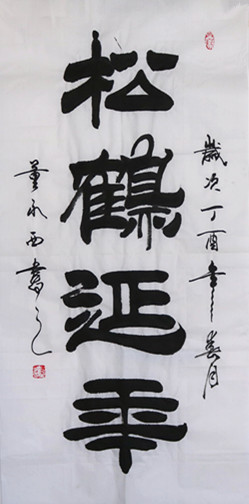 歲次丁酉年春月
松鶴延年
董永西書之